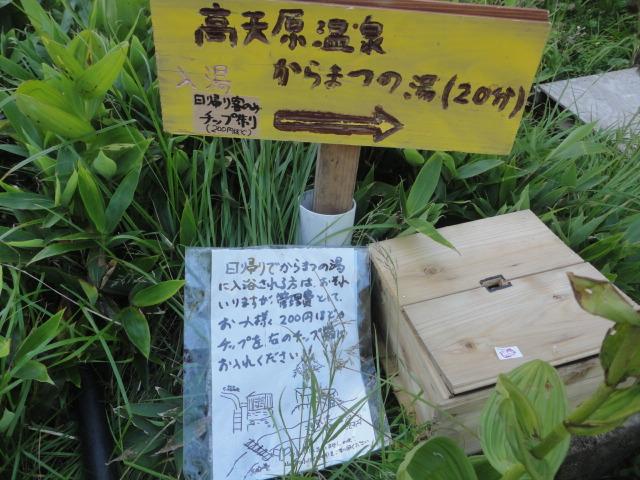 高天原温泉
入湯
からまつの湯(20分)
日帰り客のみ
チップ制り
(200円ほど)
日帰りでからまつの湯
に入浴される方は、お手
いりますが、管理費として、
お一人様¢200円ほどの
チップを右のチップ箱に
お入れください。